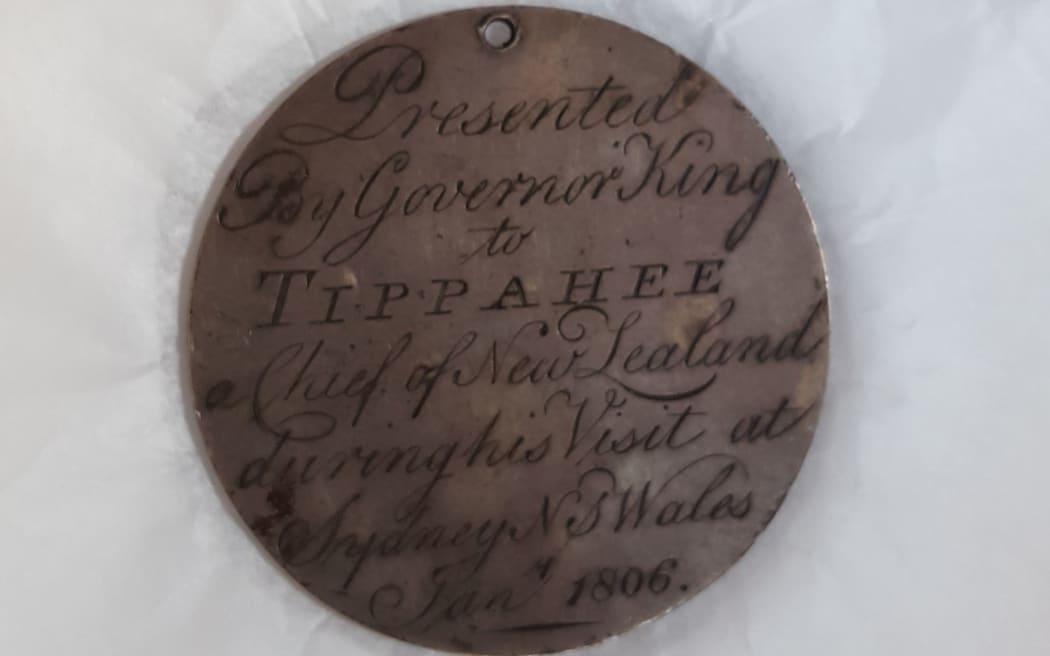 Presented
By Governor King
to
TIPPAHEE
a Chief of New Zealand
during his Visit at
Sydney N S Wales
Jany 1806.